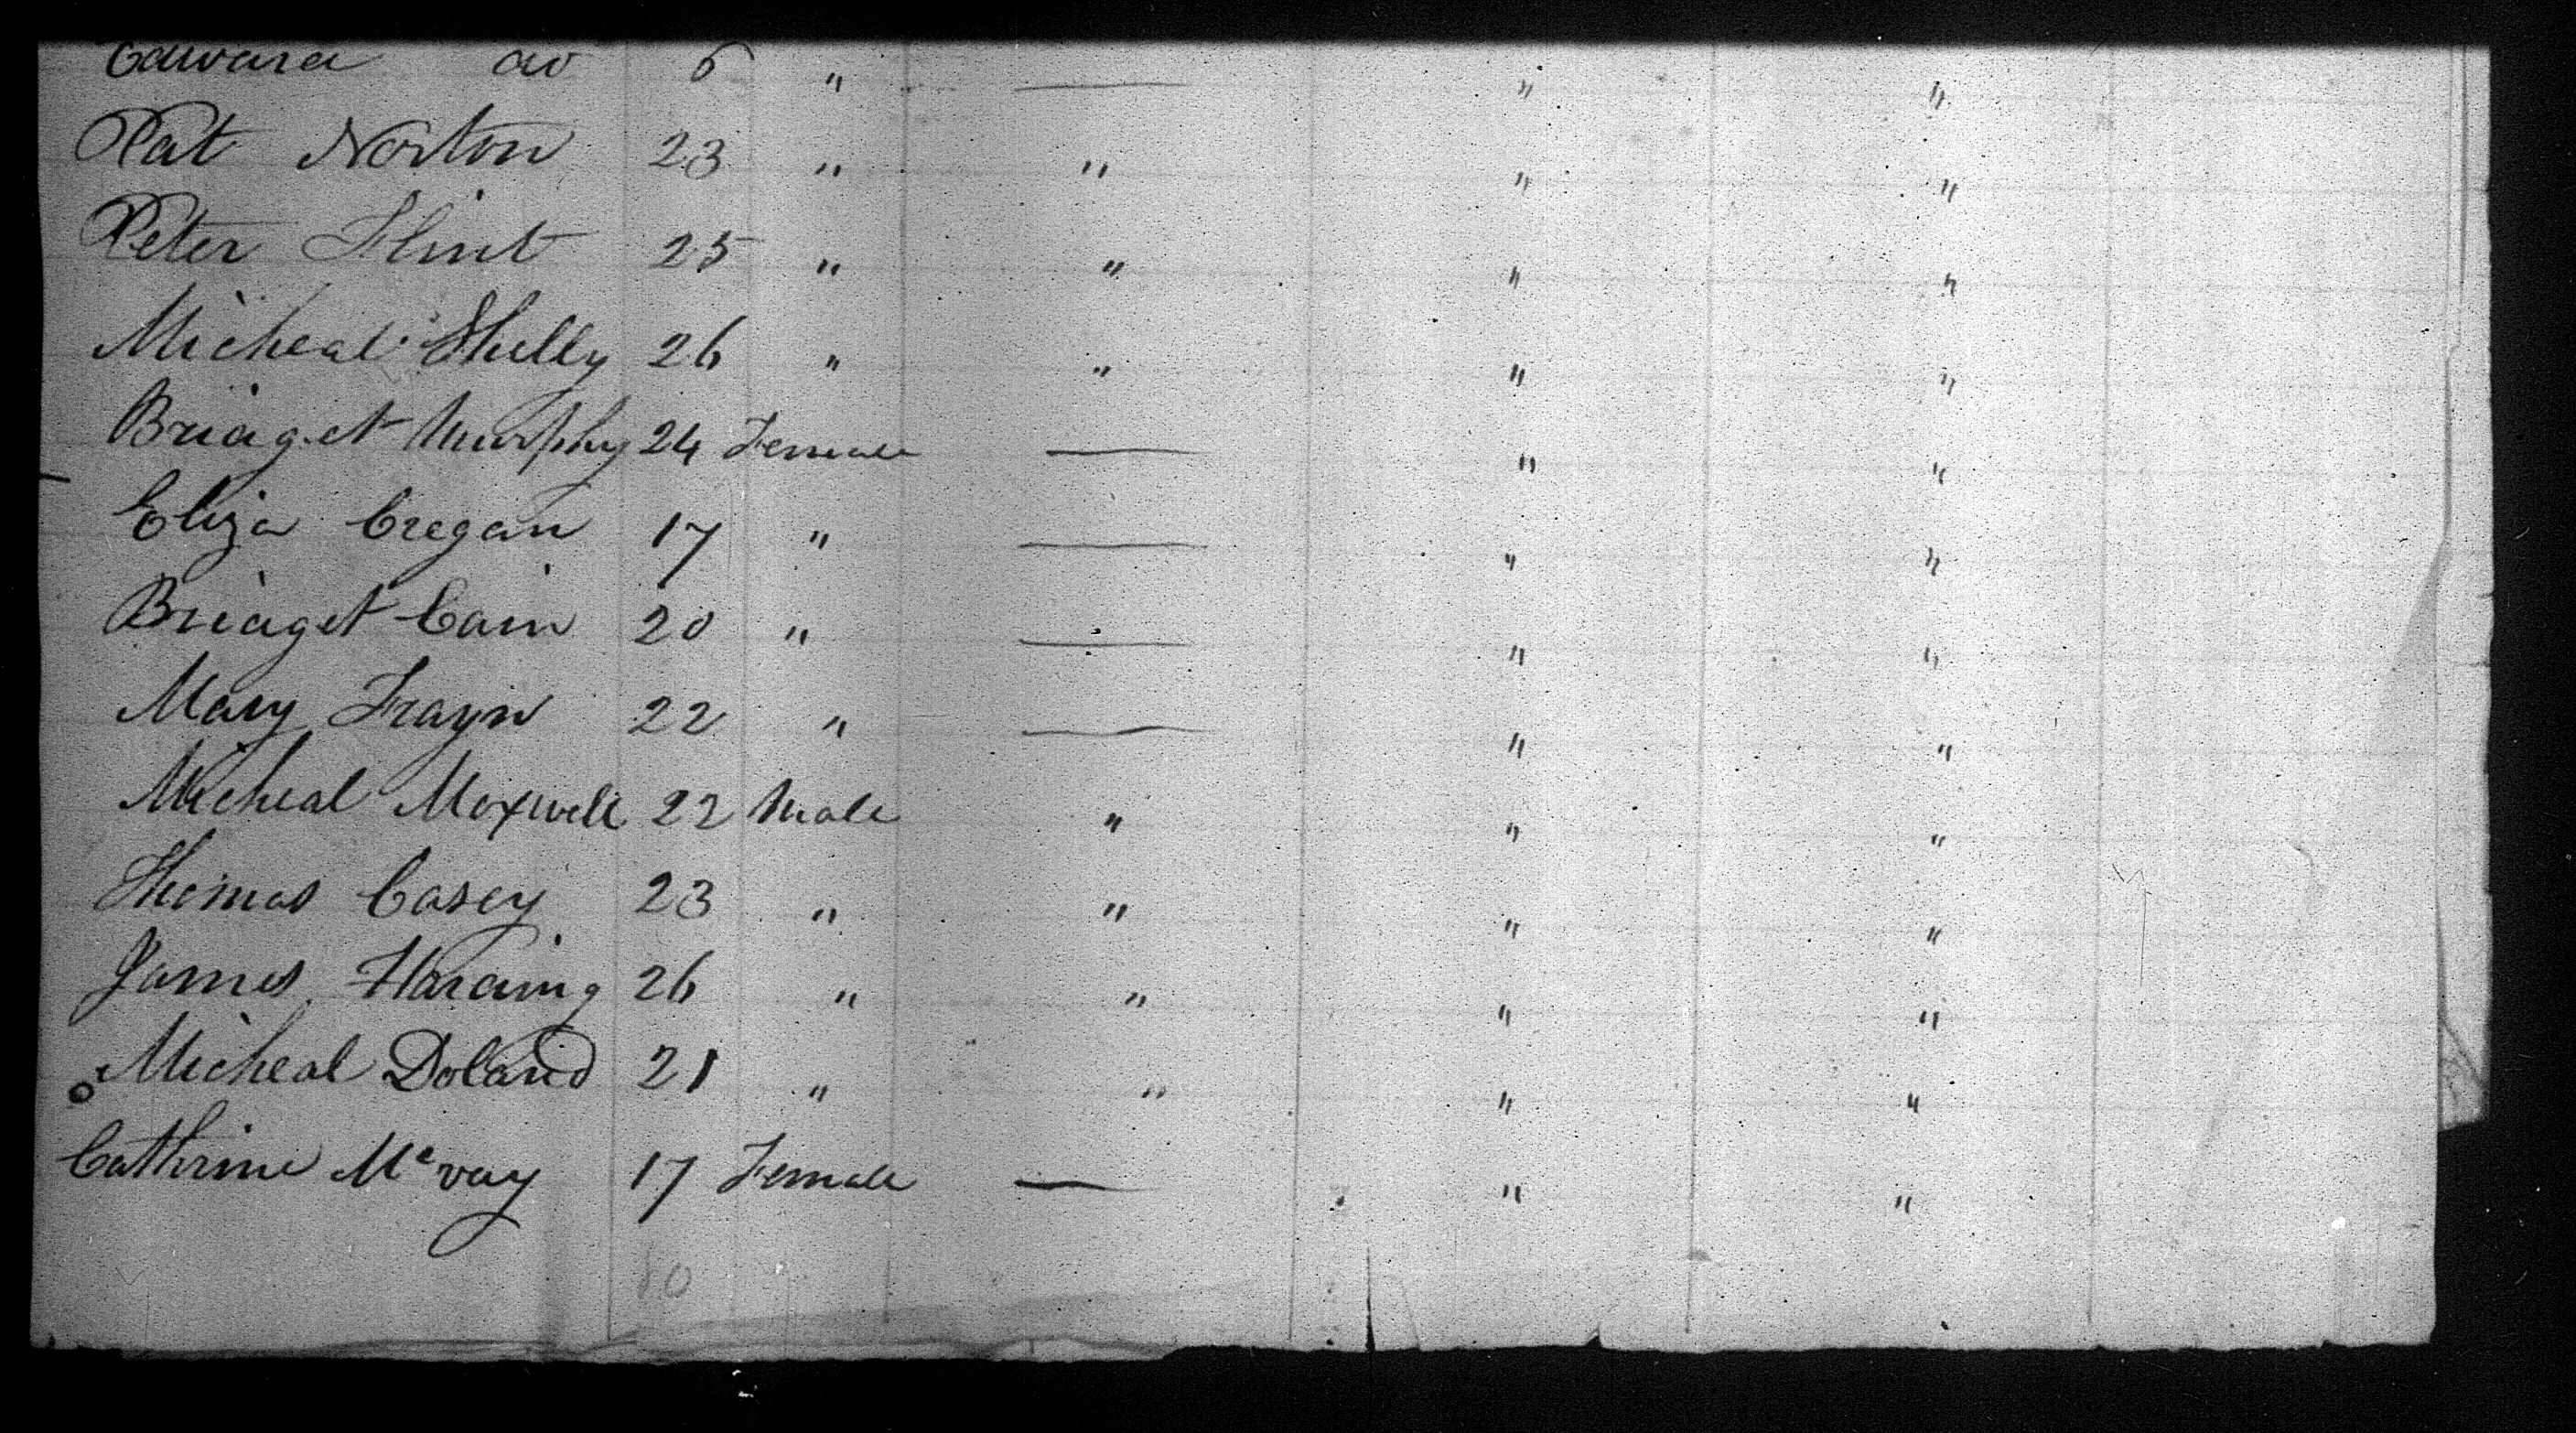 Edward do 6 " — " "
Pat Norton 23 " " " "
Peter Flint 25 " " " "
Micheal Shelly 26 " " " "
Bridget Murphy 24 Female — " "
Eliza Cregan 17 " — " "
Bridget Cain 20 " — " "
Mary Frayn 22 " — " "
Micheal Maxwell 22 Male " " "
Thomas Casey 23 " " " "
James Harding 26 " " " "
Micheal Doland 21 " " " "
Cathrine Mc vay 17 Female — " "
80